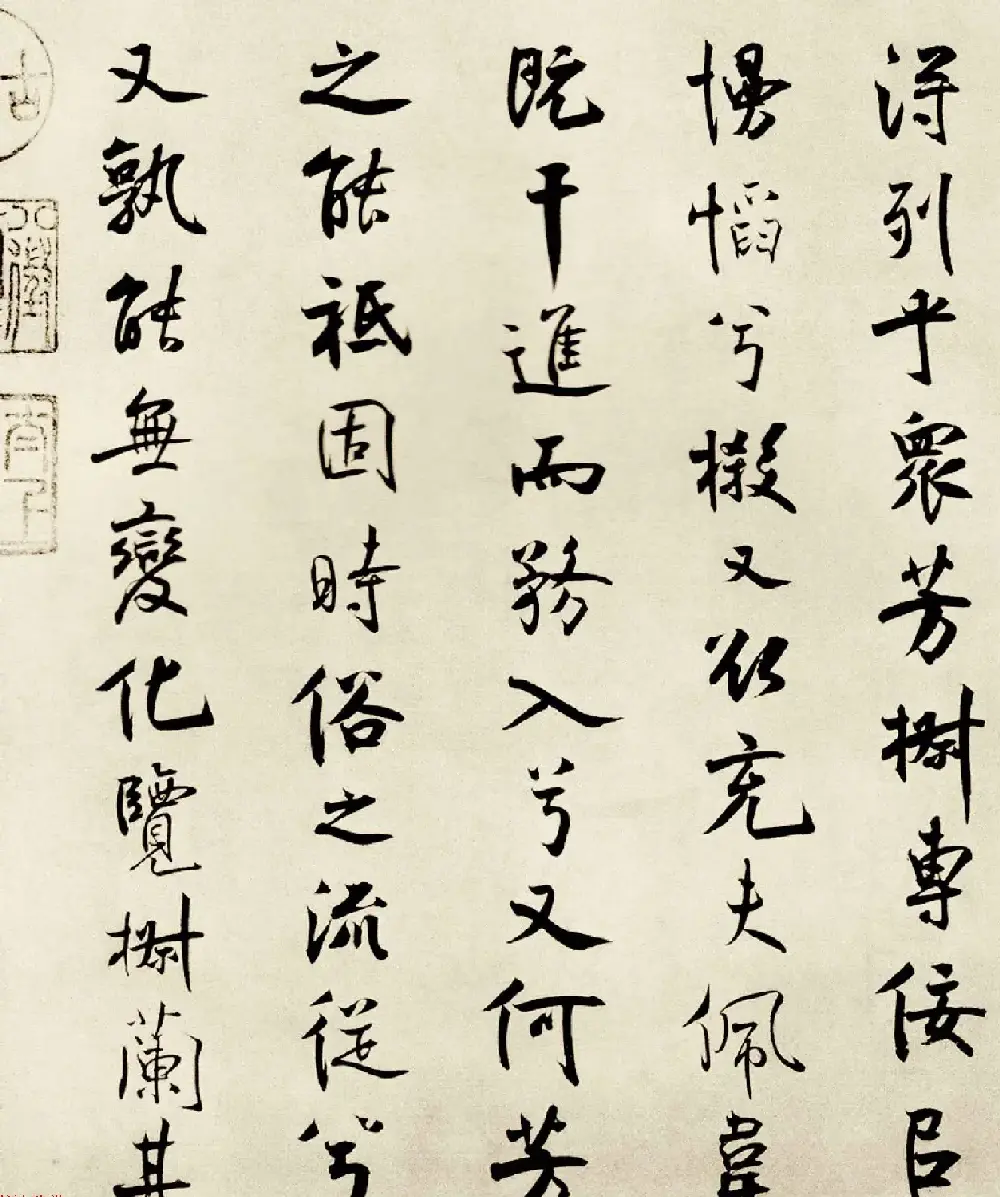 得列乎眾芳椒專佞㠯
慢慆兮樧又欲充夫佩韋
既干進而務入兮又何芳
之能祗固時俗之流從兮
又孰能無變化覽椒蘭其
古